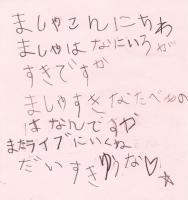 ましゃこんにちわ
ましゃはなにいろが
すきですか
ましゃすきなたべもの
はなんですか
またライブにいくね
だいすきゆうな♡☆